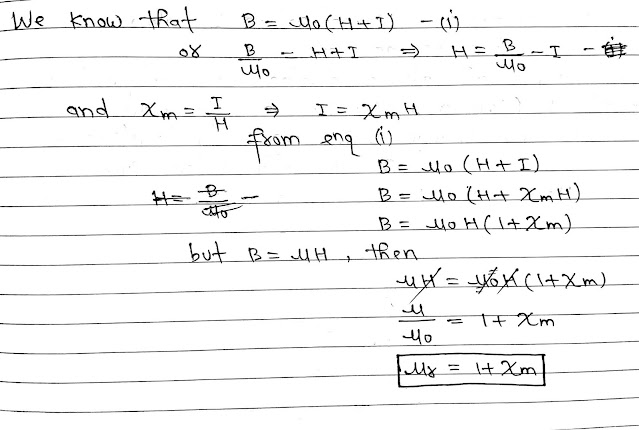 We know that B = μ₀(H+I) -(i)
or B/μ₀ - H+I ⇒ H = B/μ₀ - I -
and χm = I/H ⇒ I = χmH
from enq (i)
B = μ₀ (H+I)
H = B/μ₀ - B = μ₀ (H+ χmH)
B = μ₀H(1+χm)
but B = μH , then
μH = μ₀H(1+χm)
μ/μ₀ = 1+ χm
μr = 1+ χm